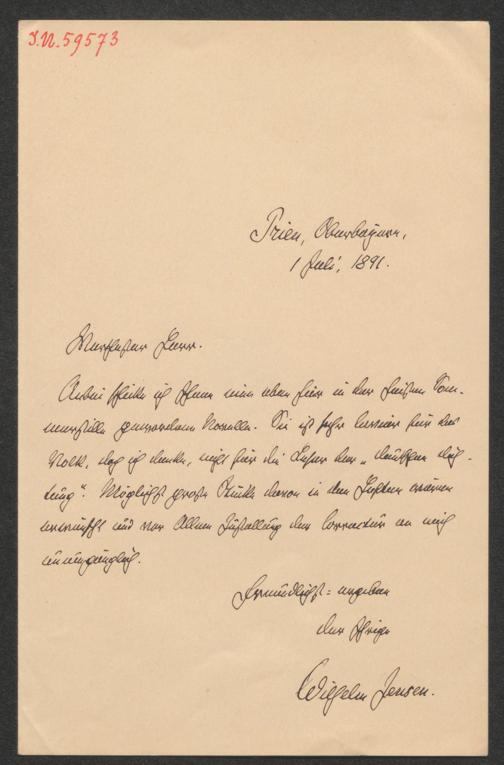 I.N. 59573
Prien, Oberbayern,
1 Juli, 1891.
Verehrter Herr.
Anbei schicke ich Ihnen eine eben hier in der
gewordene Novelle. Sie ist sehr für das
Volk, doch ich denke, nicht für die Leser der „deutschen Dich-
tung“. Möglichst große Stücke davon in den Heften wären
erwünscht und vor Allem Zustellung der Correctur an mich
unumgänglich.
Freundlichst = ergeben
der Ihrige
Wilhelm Jensen.